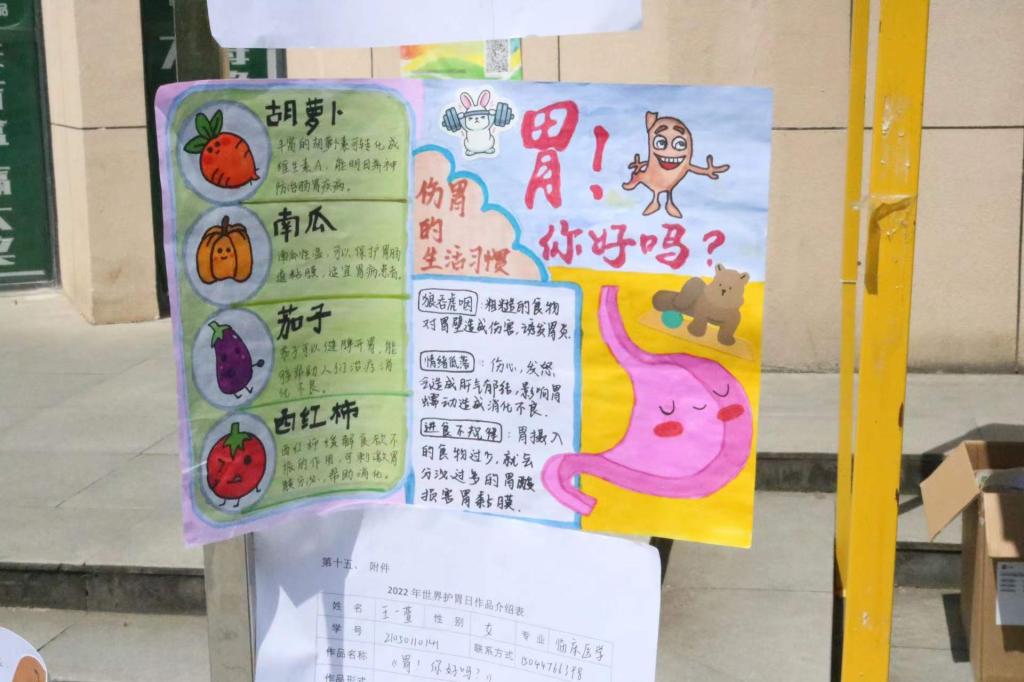 胡萝卜
丰富的胡萝卜素可转化成
维生素A，能明目养神
防治肠胃疾病。
南瓜
南瓜性温，可以保护胃肠
道黏膜，适宜胃病患者。
茄子
茄子可以健脾开胃，能
够帮助人们治疗消
化不良。
西红柿
西红柿缓解食欲不
振的作用，可刺激胃
酸分泌，帮助消化。
胃！
你好吗？
伤胃
的
生活习惯
狼吞虎咽：粗糙的食物
对胃壁造成伤害，诱发胃炎.
情绪低落：伤心，发怒
会造成肝气郁结，影响胃
蠕动造成消化不良.
进食不规律：胃摄入
的食物过少，就会
分泌过多的胃酸
损害胃黏膜.
第十五、附件
2022年世界护胃日作品介绍表
姓 名 王一萱 性 别 女 专 业 临床医学
学 号 联系方式
作品名称 《胃！你好吗？》
作品形式